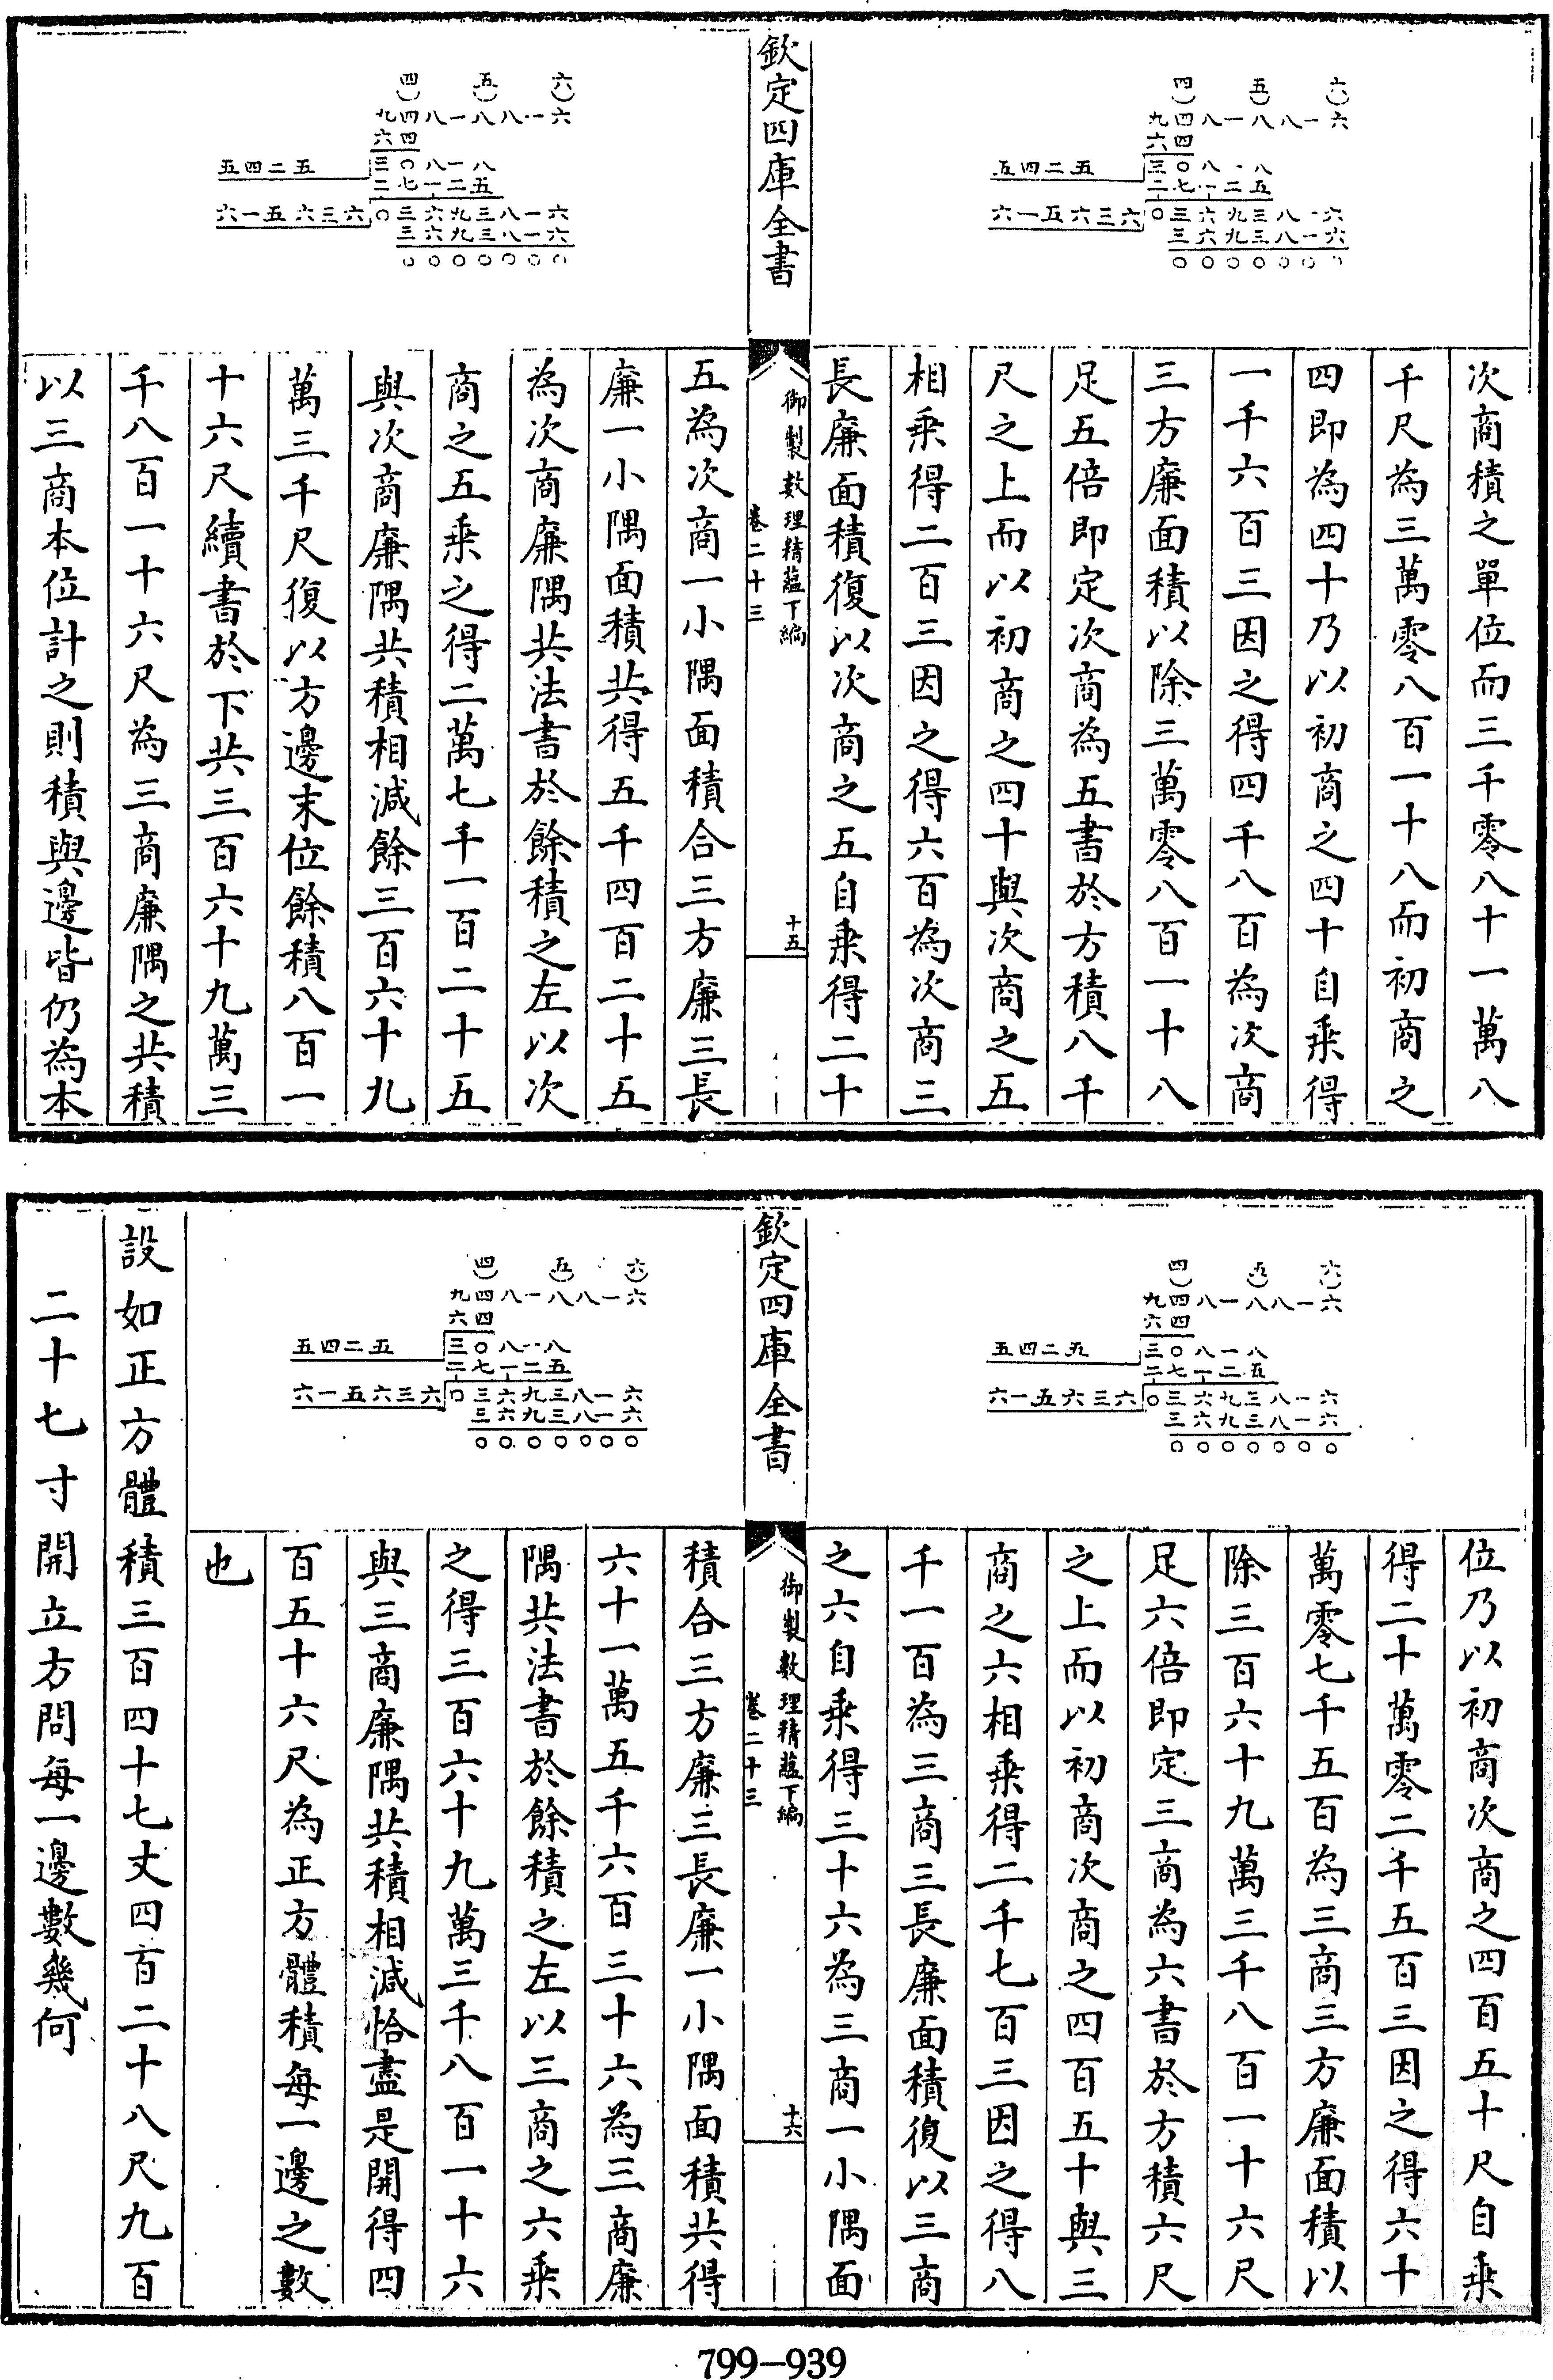 四 五 六
九四八一八八一六
六四
三〇八一八
五四二五
二七一二五
六一五六三六
〇三六九三八一六
三六九三八一六
〇〇〇〇〇〇〇
次商積之單位而三千零八十一萬八
千尺為三萬零八百一十八而初商之
四即為四十乃以初商之四十自乗得
一千六百三因之得四千八百為次商
三方廉面積以除三萬零八百一十八
足五倍即定次商為五書於方積八千
尺之上而以初商之四十與次商之五
相乗得二百三因之得六百為次商三
長廉面積復以次商之五自乗得二十
欽定四庫全書
御製數理精蘊下編
卷二十三
十五
四 五 六
九四八一八八一六
六四
三〇八一八
五四二五
二七一二五
六一五六三六
〇三六九三八一六
三六九三八一六
〇〇〇〇〇〇〇
五為次商一小隅面積合三方廉三長
廉一小隅面積共得五千四百二十五
為次商廉隅共法書於餘積之左以次
商之五乗之得二萬七千一百二十五
與次商廉隅共積相減餘三百六十九
萬三千尺復以方邊末位餘積八百一
十六尺續書於下共三百六十九萬三
千八百一十六尺為三商廉隅之共積
以三商本位計之則積與邊皆仍為本
四 五 六
九四八一八八一六
六四
三〇八一八
五四二五
二七一二五
六一五六三六
〇三六九三八一六
三六九三八一六
〇〇〇〇〇〇〇
位乃以初商次商之四百五十尺自乗
得二十萬零二千五百三因之得六十
萬零七千五百為三商三方廉面積以
除三百六十九萬三千八百一十六尺
足六倍即定三商為六書於方積六尺
之上而以初商次商之四百五十與三
商之六相乗得二千七百三因之得八
千一百為三商三長廉面積復以三商
之六自乗得三十六為三商一小隅面
欽定四庫全書
御製數理精蘊下編
卷二十三
十六
四 五 六
九四八一八八一六
六四
三〇八一八
五四二五
二七一二五
六一五六三六
〇三六九三八一六
三六九三八一六
〇〇〇〇〇〇〇
積合三方廉三長廉一小隅面積共得
六十一萬五千六百三十六為三商廉
隅共法書於餘積之左以三商之六乗
之得三百六十九萬三千八百一十六
與三商廉隅共積相減恰盡是開得四
百五十六尺為正方體積每一邊之數
也
設如正方體積三百四十七丈四百二十八尺九百
二十七寸開立方問每一邊數幾何
799-939